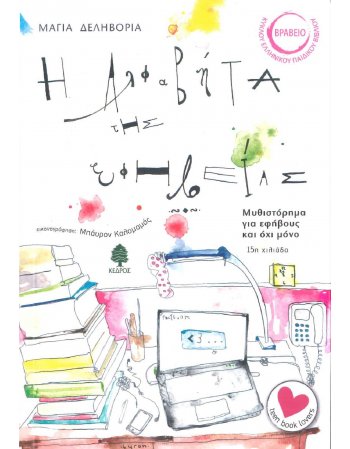 ΜΑΓΙΑ ΔΕΛΗΒΟΡΙΑ
ΒΡΑΒΕΙΟ
ΚΥΚΛΟΥ ΕΛΛΗΝΙΚΟΥ ΠΑΙΔΙΚΟΥ ΒΙΒΛΙΟΥ
Η ΑΛΦΑΒΗΤΑ
ΤΗΣ
ΕΦΗΒΕΙΑΣ
εικονογράφηση: Μπάυρον Καλομαμάς
Μυθιστόρημα
για εφήβους
και όχι μόνο
15η χιλιάδα
ΚΕΔΡΟΣ
teen book lovers